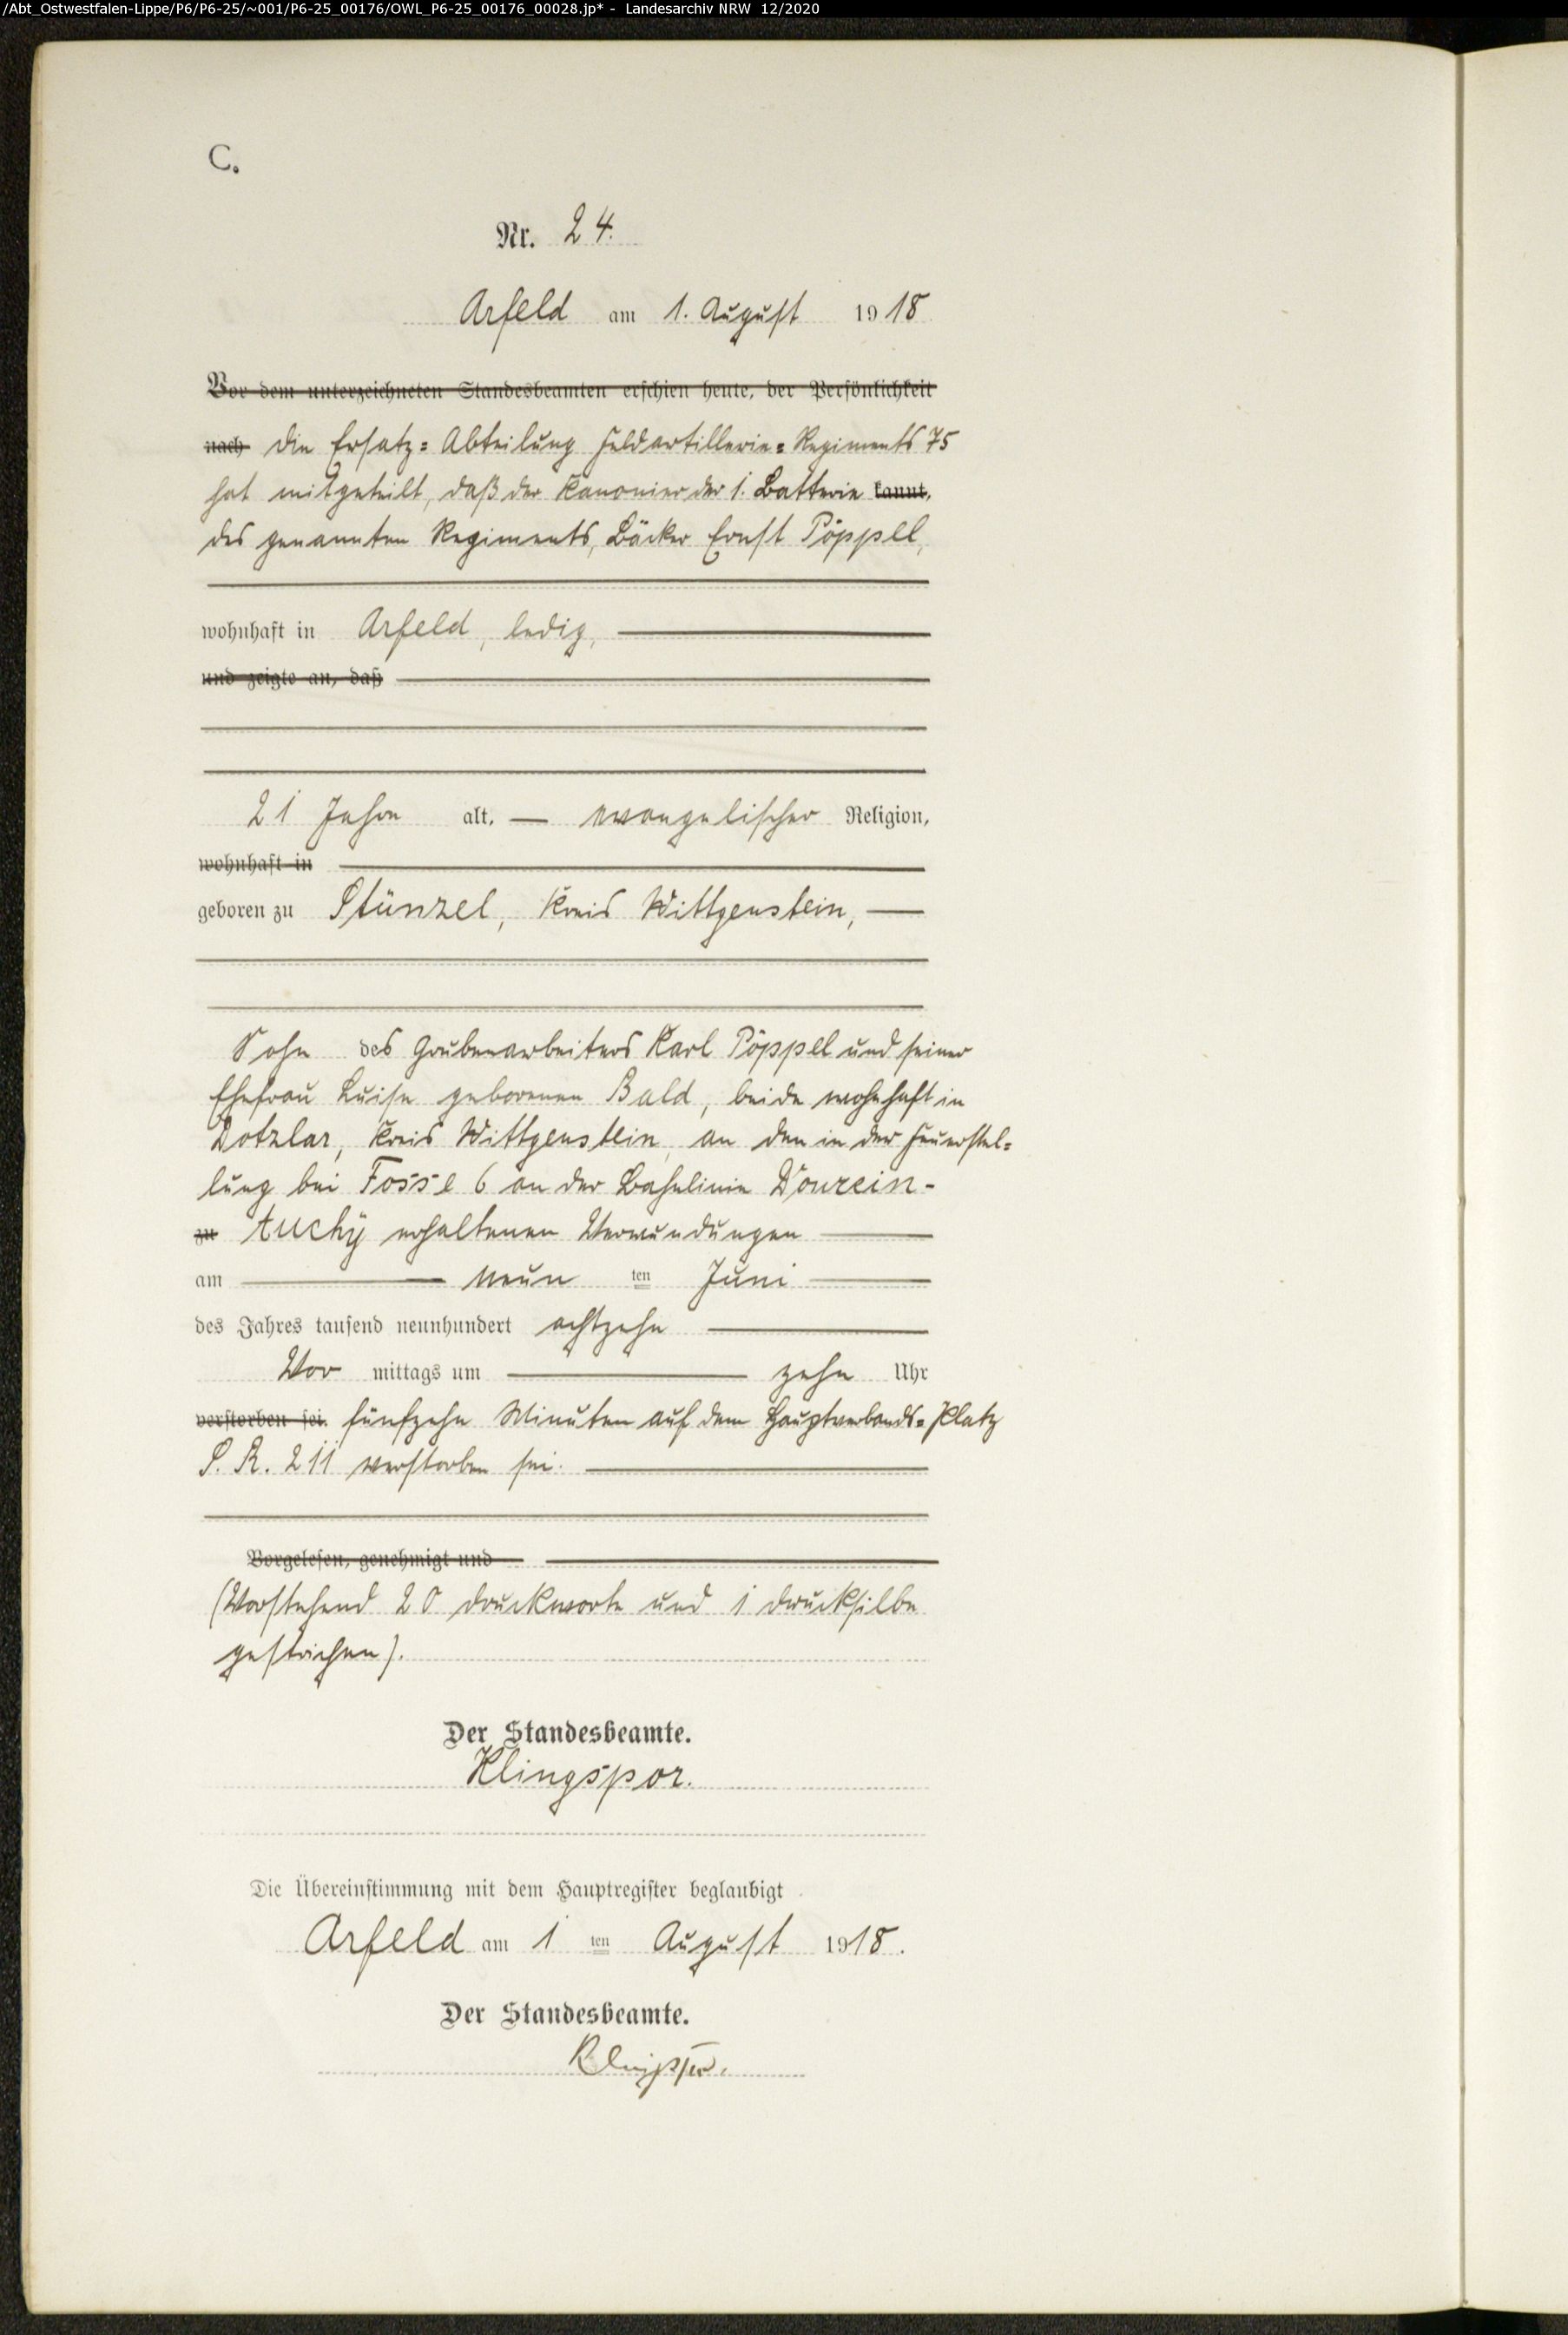 /Abt_Ostwestfalen-Lippe/P6/P6-25/~001/P6-25_00176/OWL_P6-25_00176_00028.jp* - Landesarchiv NRW 12/2020
C.
Nr. 24.
Arfeld am 1. August 1918
Vor dem unterzeichneten Standesbeamten erschien heute, der Persönlichkeit
nach die Ersatz=Abteilung Feldartillerie=Regiments 75
hat mitgeteilt, daß der Kanonier der 1. Batterie kannt,
des genannten Regiments, Bäcker Ernst Pöppel,
wohnhaft in Arfeld, ledig,
und zeigte an, daß
21 Jahre alt, evangelischer Religion,
wohnhaft in
geboren zu Stünzel, Kreis Wittgenstein,
Sohn des Grubenarbeiters Karl Pöppel und seiner
Ehefrau Luise geborenen Bald, beide wohnhaft in
Dotzlar, Kreis Wittgenstein, an den in der Feuerstel=
lung bei Fosse 6 an der Bahnlinie Dourein-
zu Auchy erhaltenen Verwundungen
am neun ten Juni
des Jahres tausend neunhundert achtzehn
Vor mittags um zehn Uhr
verstorben sei. fünfzehn Minuten auf dem Hauptverbands=Platz
S. K. 211 verstorben sei.
Vorgelesen, genehmigt und
(Vorstehend 20 Druckworte und 1 Drucksilbe
gestrichen).
Der Standesbeamte.
Klingspor.
Die Übereinstimmung mit dem Hauptregister beglaubigt
Arfeld am 1 ten August 1918.
Der Standesbeamte.
Klingspor.